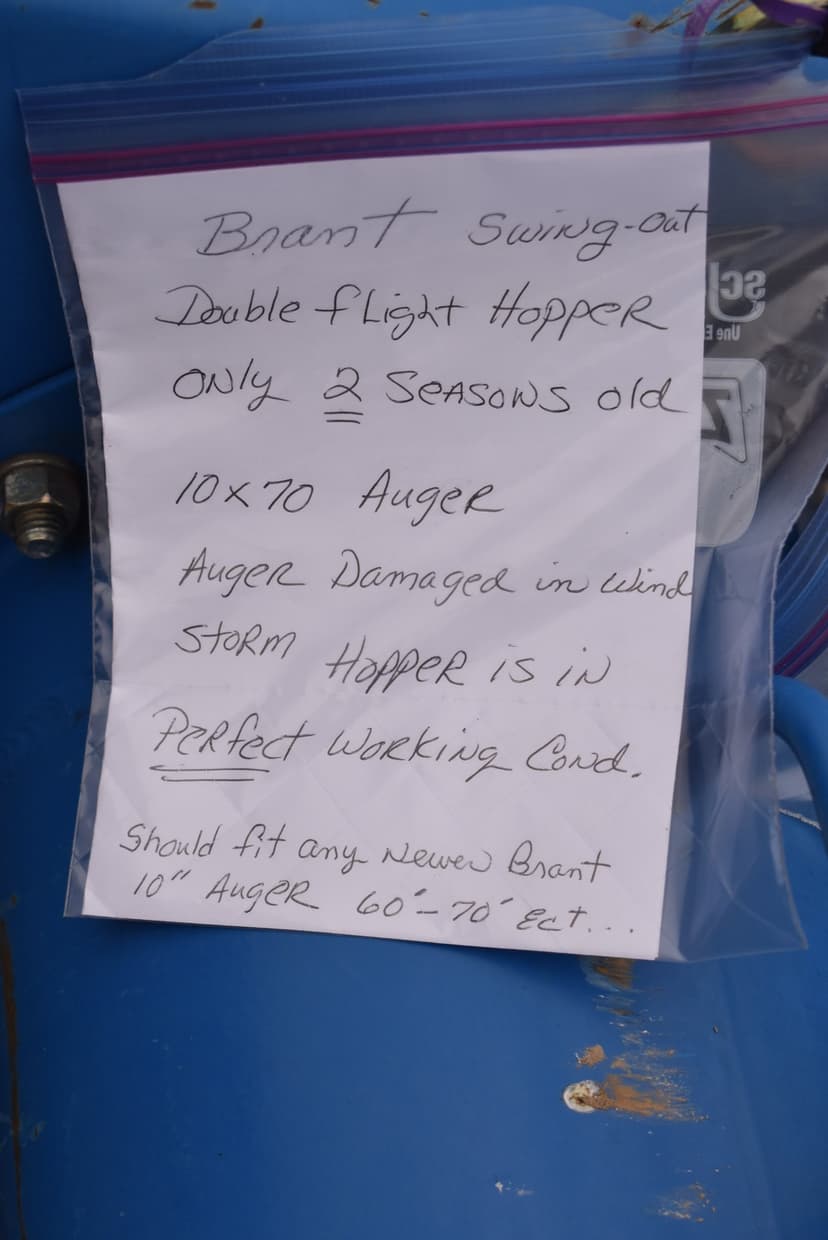 Brant Swing-Out
Double flight Hopper
Only 2 Seasons old
10x70 Auger
Auger Damaged in Wind
Storm Hopper is in
Perfect Working Cond.
Should fit any Newer Brant
10" Auger 60'-70' Ect...
Une E